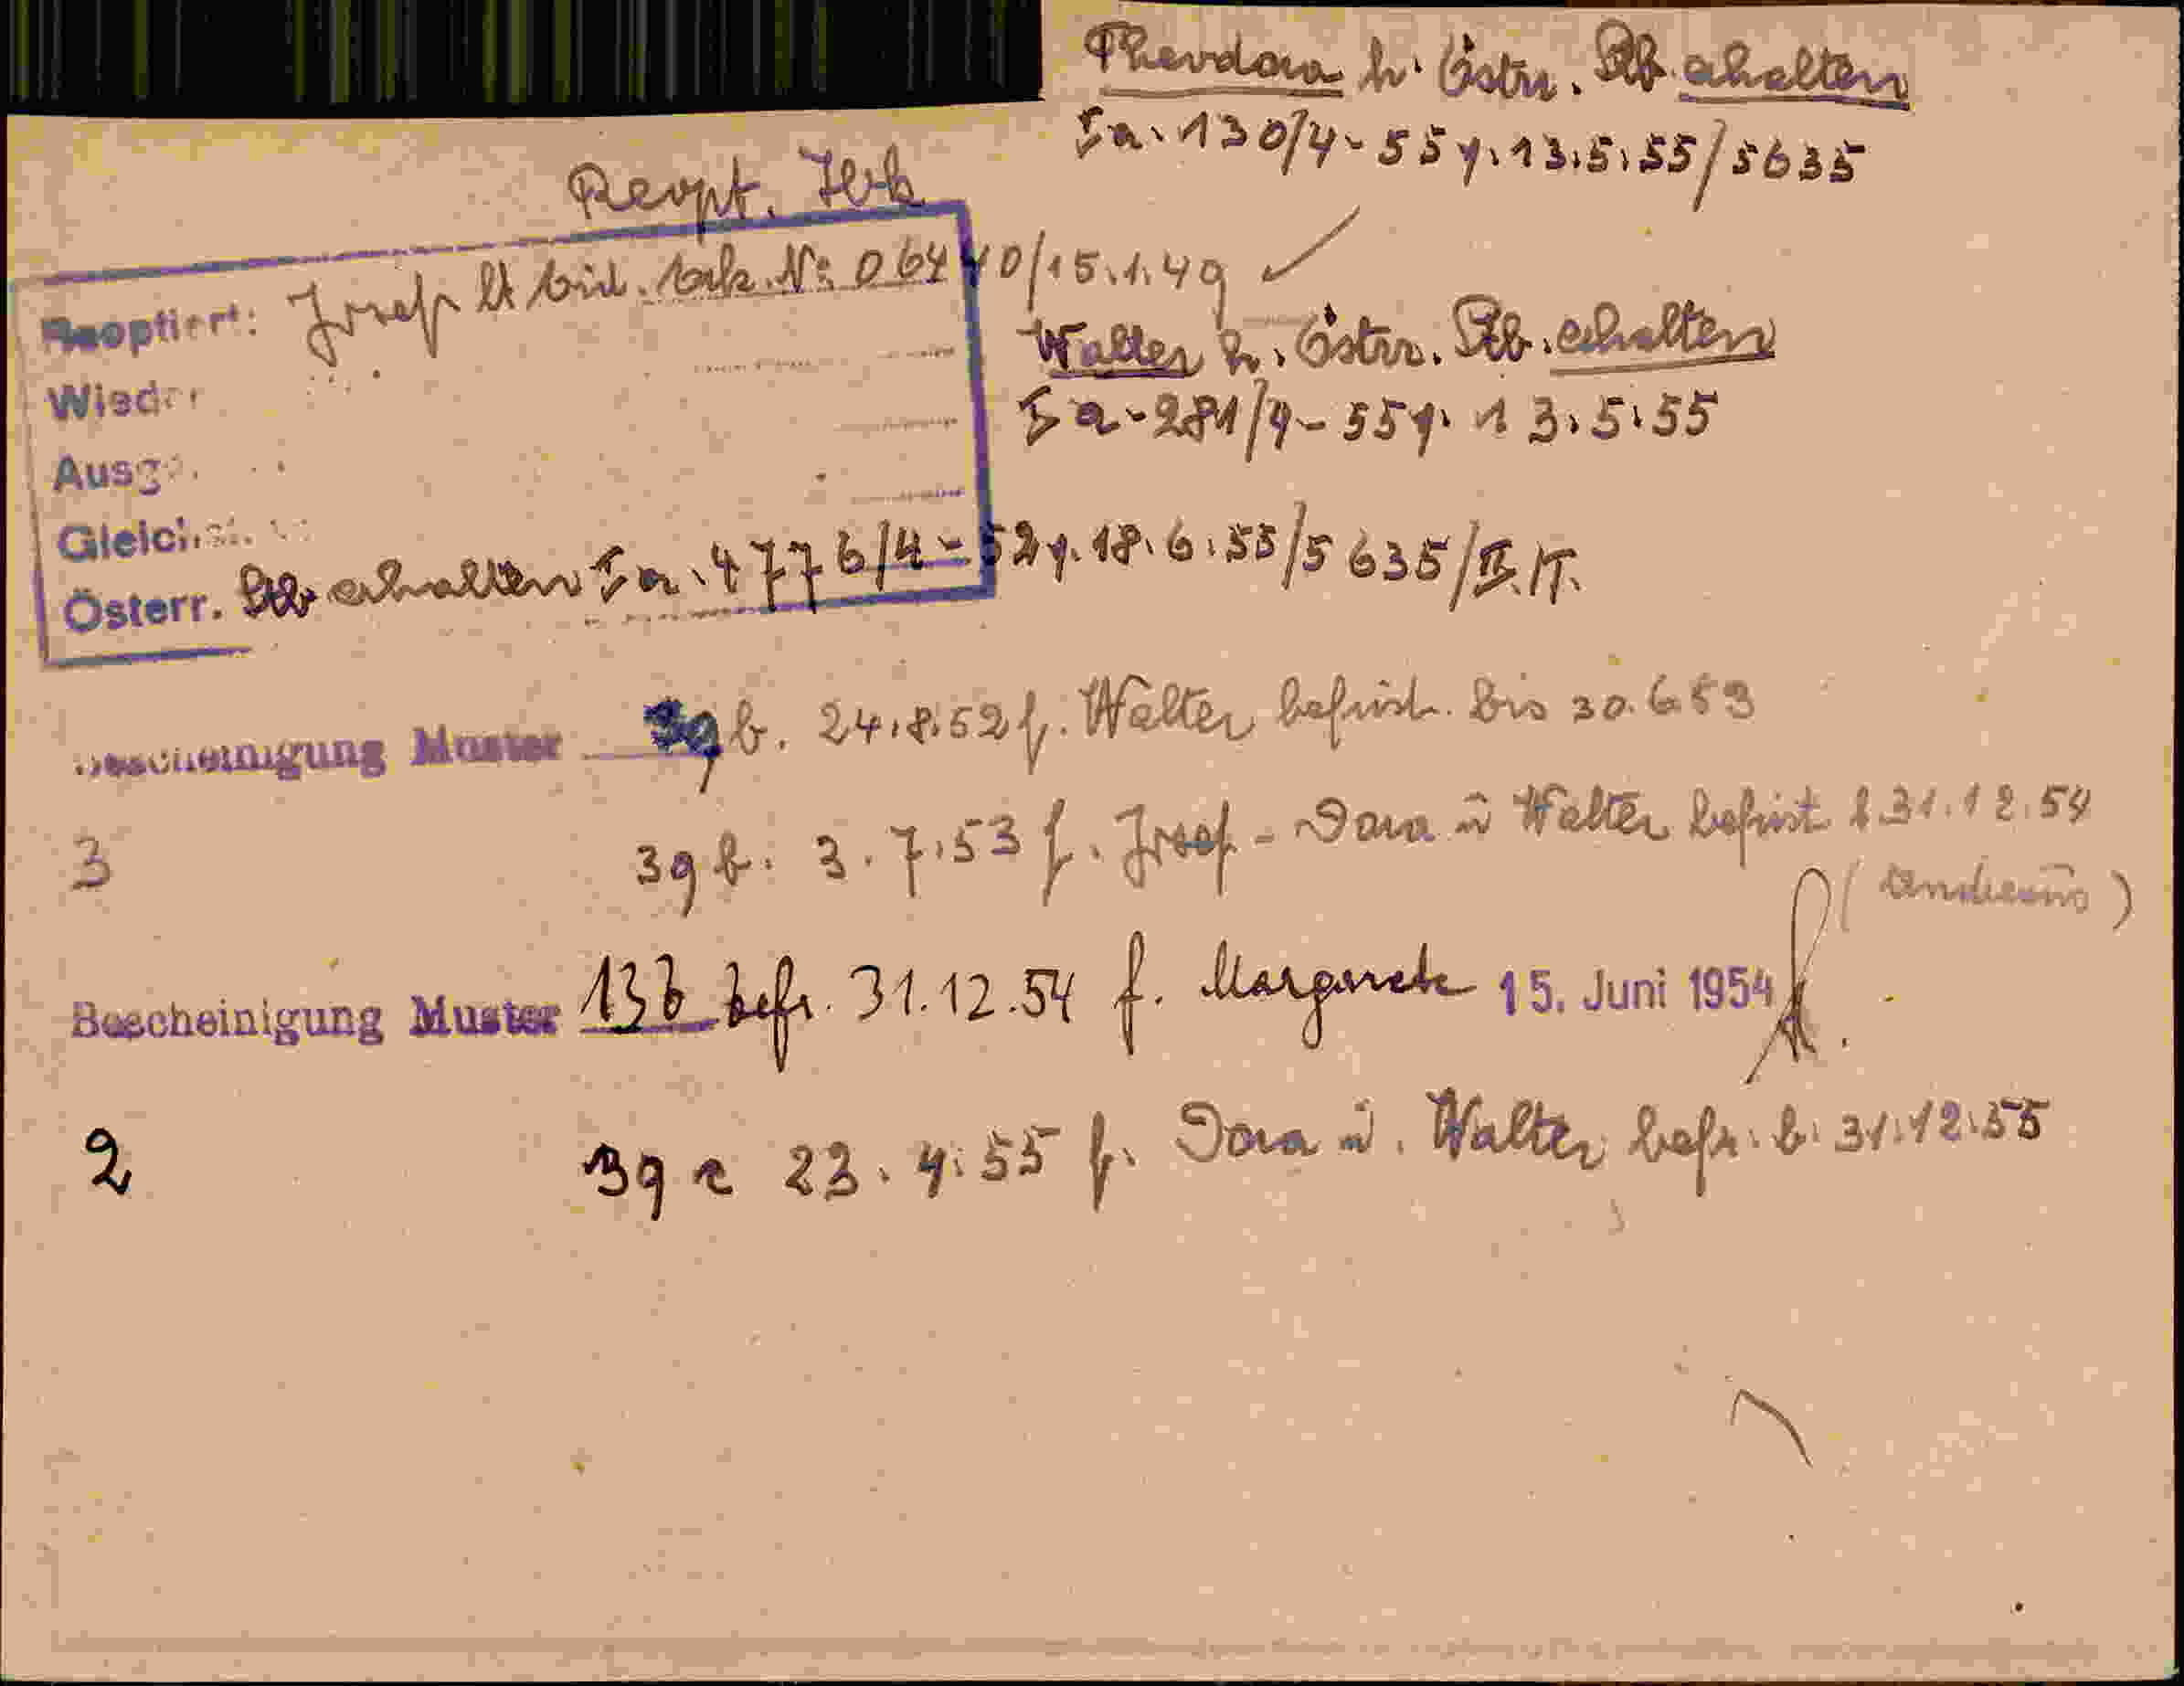 Theodora h. Östrr. Stb. erhalten
Ia-130/4-55 v. 13.5.55/5635
Reopt.
Reoptiert: Josef lt 06440/15.1.49 ✓
Walter h. Östrr. Stb. erhalten
Wieder
Ia-281/4-55 v. 13.5.55
Ausge
Gleichst
Österr. Stb erhalten Ia-4776/4-52 v. 18.6.55/5635/
Bescheinigung Muster 39 b. 24.8.52 f. Walter befrist. bis 30.6.53
3 39 b. 3.7.53 f. Josef - Dora u Walter befrist b 31.12.54
Bescheinigung Muster 13b befr. 31.12.54 f. Margarete 15. Juni 1954
2 39 c 23.4.55 f. Dora u. Walter befr. b. 31.12.55